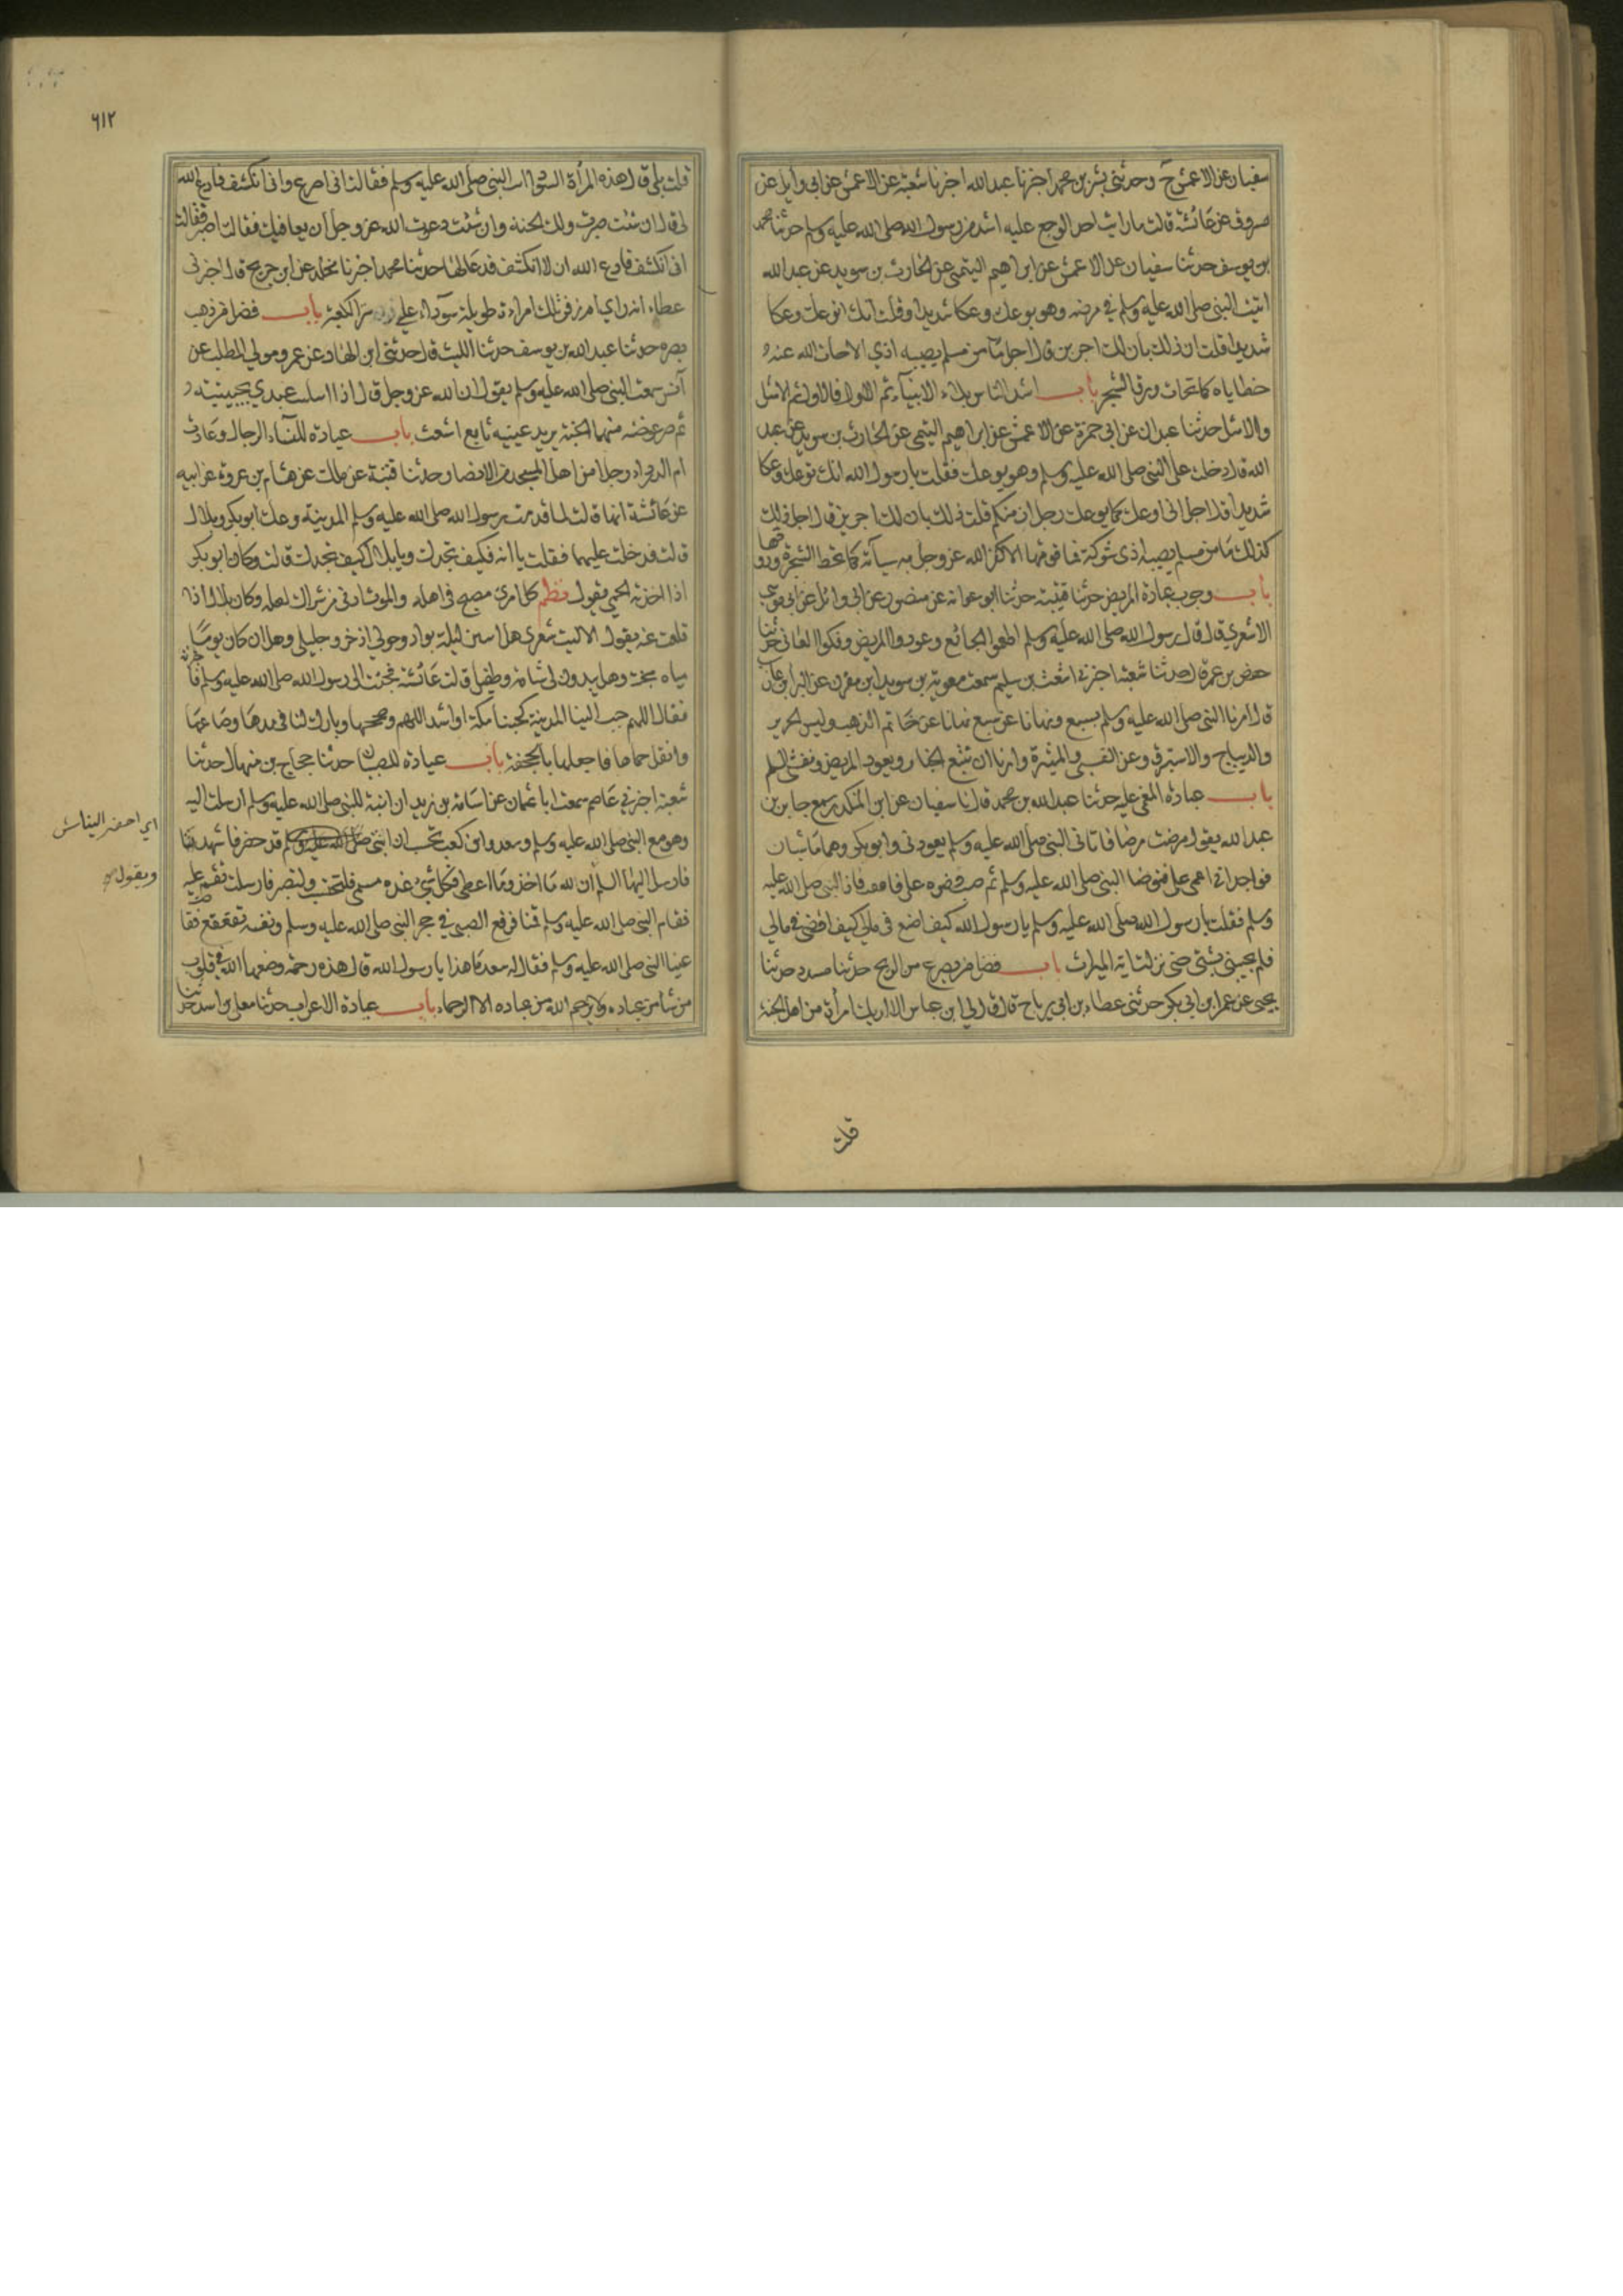 سفيان عن الاعمش ح وحدثني بشر بن محمد اخبرنا عبد الله اخبرنا شعبة عن الاعمش عن ابي وايل عن
مسروق عن عائشة قالت ما رايت احد الوجع عليه اشد من رسول الله صلى الله عليه وسلم حدثنا محمد
بن يوسف حدثنا سفيان عن الاعمش عن ابراهيم التيمي عن الحارث بن سويد عن عبد الله
اتيت النبي صلى الله عليه وسلم في مرضه وهو يوعك وعكا شديدا وقلت انك لتوعك وعكا
شديدا قلت ان ذلك بان لك اجرين قال اجل ما من مسلم يصيبه اذي الا حات الله عنه
خطاياه كما تحات ورق الشجر باب اشد الناس بلاء الانبياء ثم الاول فالاول ثم الامثل
والامثل حدثنا عبدان عن ابي حمزة عن الاعمش عن ابراهيم التيمي عن الحارث بن سويد عن عبد
الله قال دخلت على النبي صلى الله عليه وسلم وهو يوعك فقلت يا رسول الله انك توعك وعكا
شديدا قال اجل اني اوعك كما يوعك رجلان منكم قلت ذلك بان لك اجرين قال اجل ذلك
كذلك ما من مسلم يصيبه اذى شوكة فما فوقها الا كفر الله عز وجل به سيآته كما تحط الشجرة ورقها
باب وجوب عيادة المريض حدثنا قتيبة حدثنا ابو عوانه عن منصور عن ابي وائل عن ابي موسي
الاشعري قال قال رسول الله صلى الله عليه وسلم اطعموا الجائع وعودوا المريض وفكوا العاني حدثنا
حفص بن عمر قال حدثنا شعبة اخبرني اشعث بن سليم سمعت معوية بن سويد ابن مقرن عن البرا بن عازب
قال امرنا النبي صلى الله عليه وسلم بسبع ونهانا عن سبع نهانا عن خاتم الذهب ولبس الحرير
والديباج والاستبرق وعن القسي والميثرة وامرنا ان نتبع الجنايز ونعود المريض ونفشي السلم
باب عيادة المغمي عليه حدثنا عبد الله بن محمد قال نا سفيان عن ابن المنكدر سمع جابر بن
عبد الله يقول مرضت مرضا فاتاني النبي صلى الله عليه وسلم يعودني وابو بكر وهما ماشيان
فواجداني اغمي علي فتوضا النبي صلى الله عليه وسلم ثم صب وضوءه علي فافقت فاذا النبي صلى الله عليه
وسلم فقلت يا رسول الله صلى الله عليه وسلم يا رسول الله كيف اصنع في مالي كيف اقضي في مالي
فلم يجبني بشئ حتى نزلت اية الميراث باب فضل من يصرع من الريح حدثنا مسدد حدثنا
يحيى عن عمر ابن ابي بكر حدثني عطاء بن ابي رباح قال قال لي ابن عباس الا اريك امرأة من اهل الجنة
قلت
٦١٢
قلت بلى قال هذه المرأة السودا اتت النبي صلى الله عليه وسلم فقالت اني اصرع واني اتكشف فادع الله
لي قال ان شئت صبرت ولك الجنة وان شئت دعوت الله عز وجل ان يعافيك فقالت اصبر فقالت
اني اتكشف فادع الله ان لا اتكشف فدعا لها حدثنا محمد اخبرنا مخلد عن ابن جريج قال اخبرني
عطاء انه راي ام زفر تلك امراءة طويلة سوداء علي ستر الكعبة باب فضل من ذهب
بصره حدثنا عبد الله بن يوسف حدثنا الليث قال حدثني ابن الهاد عن عمرو مولي المطلب عن
انس سمعت النبي صلى الله عليه وسلم يقول ان الله عز وجل قال اذا ابتليت عبدي بحبيبتيه
ثم صبر عوضته منهما الجنة يريد عينيه تابع اشعث باب عيادة النساء الرجال وعادت
ام الدرداء رجلا من اهل المسجد من الانصار حدثنا قتيبة عن مالك عن هشام بن عروة عن ابيه
عن عائشة انها قالت لما قدم رسول الله صلى الله عليه وسلم المدينة وعك ابو بكر وبلال
قالت فدخلت عليهما فقلت يا ابه فكيف تجدك ويا بلال كيف تجدك قالت وكان ابو بكر
اذا اخذته الحمي يقول نظم كل امرئ مصبح في اهله والموت ادنى من شراك نعله وكان بلال اذا
قلعت عنه يقول الا ليت شعري هل ابيتن ليلة بواد وحولي اذخر وجليل وهل اردن يوما
مياه مجنة وهل يبدون لي شامة وطفيل قالت عائشة فجئت الى رسول الله صلى الله عليه وسلم فاخبرته
فقال اللهم حبب الينا المدينة كحبنا مكة او اشد اللهم وصححها وبارك لنا في مدها وصاعها
وانقل حماها فاجعلها بالجحفة باب عيادة الصبيان حدثنا حجاج بن منهال حدثنا
شعبة اخبرني عاصم سمعت ابا عثمان عن اسامة بن زيد ان ابنة للنبي صلى الله عليه وسلم ارسلت اليه
وهو مع النبي صلى الله عليه وسلم وسعد وابي كعب تحسب ان ابنتي قد حضر فاشهدنا
فارسل اليها السلم ان لله ما اخذ وما اعطى وكل شئ عنده مسمى فلتحتسب ولتصبر فارسلت تقسم عليه
فقام النبي صلى الله عليه وسلم قمنا فرفع الصبي في حجر النبي صلى الله عليه وسلم ونفسه تقعقع ففا
عينا النبي صلى الله عليه وسلم فقال له سعد ما هذا يا رسول الله قال هذه رحمة وضعها الله في قلوب
من شا من عباده ولا يرحم الله من عباده الا الرحماء باب عيادة الاعراب حدثنا معلى بن اسد حدثنا
ويقول